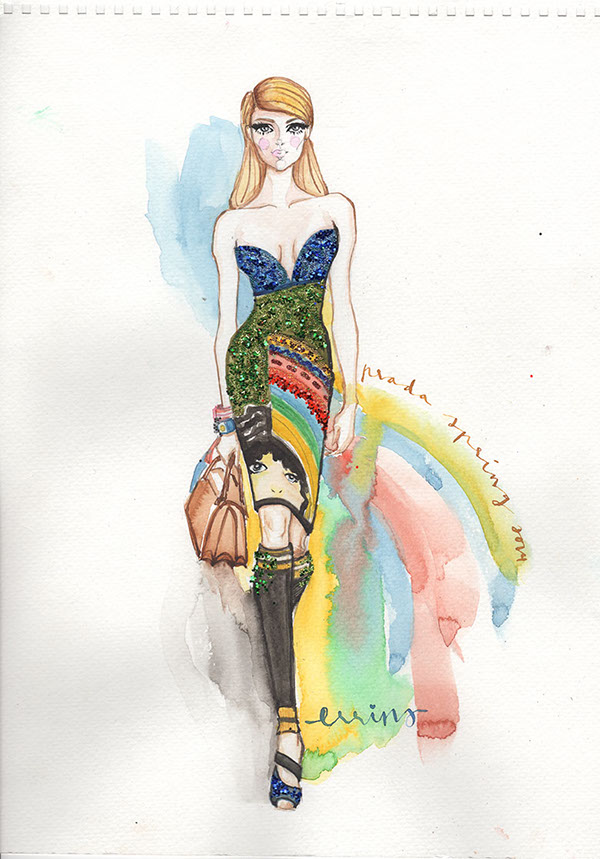 prada spring 2014
errins